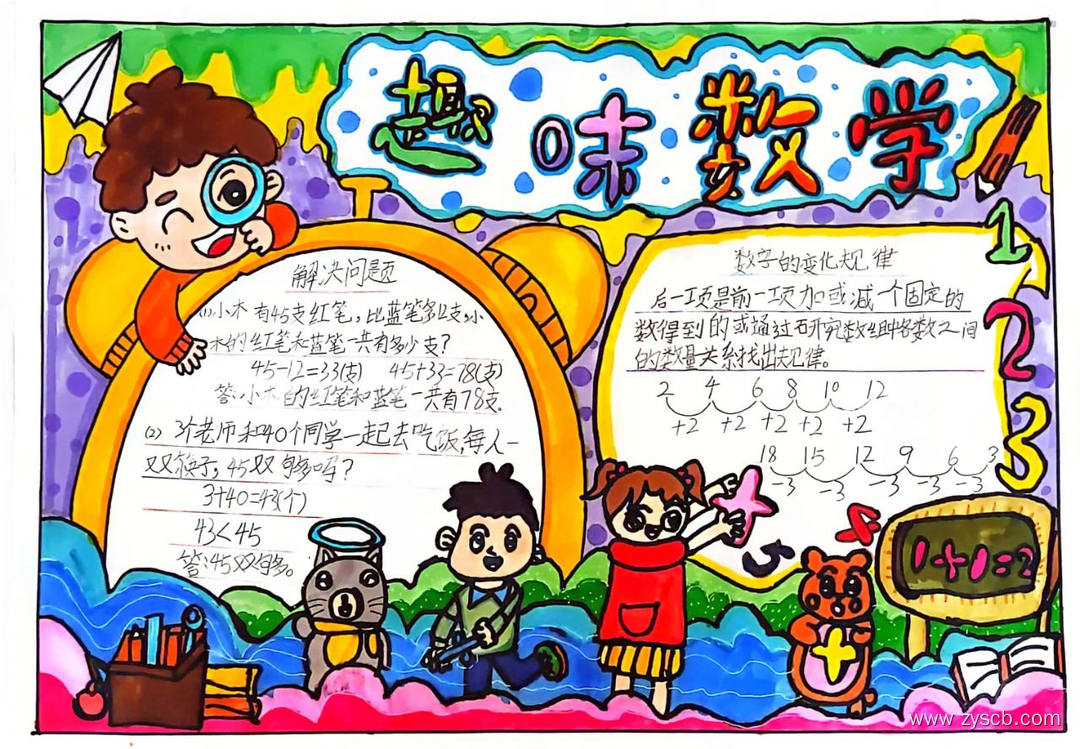 趣味数学
解决问题
(1)小木有45支红笔,比蓝笔多12支,小
木的红笔和蓝笔一共有多少支?
45-12=33(支) 45+33=78(支)
答:小木的红笔和蓝笔一共有78支。
(2) 3个老师和40个同学一起去吃饭,每人一
双筷子,45双够吗?
3+40=43(个)
43<45
答:45双够。
数字的变化规律
后一项是前一项加或减一个固定的
数得到的或通过研究数组中各数之间
的数量关系找出规律。
2 4 6 8 10 12
+2 +2 +2 +2 +2
18 15 12 9 6 3
-3 -3 -3 -3 -3
1
2
3
4
5
1+1=2
www.zyscb.com